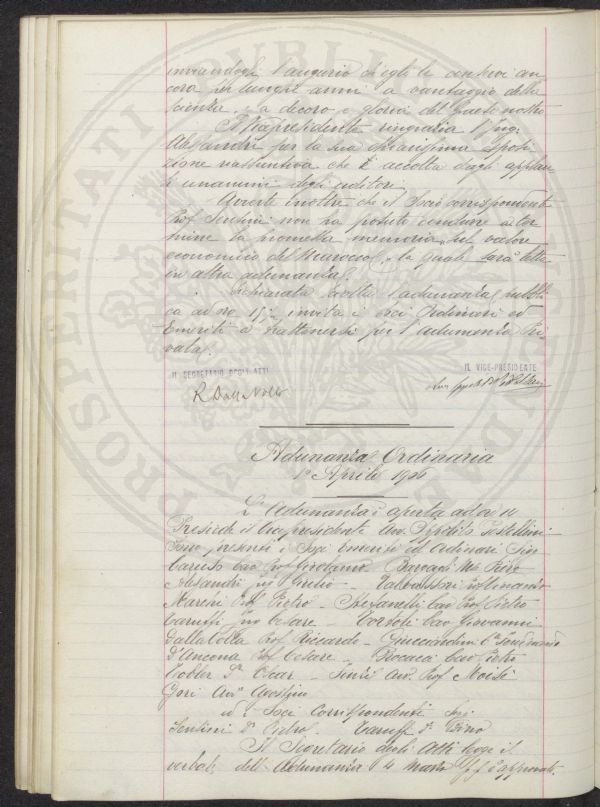 inviandogli l'augurio ch'egli le conservi an
cora per lunghi anni a vantaggio della
scienza, e a decoro e gloria del paese nostro
Il Vicepresidente ringrazia l'Ing.
Alessandri per la sua chiarissima esposi
zione riassuntiva che è accolta dagli applau
si unanimi degli uditori.
Avverte inoltre che il Socio corrispondente
Prof. Sentini non ha potuto condurre a ter
mine la promessa memoria sul valore
economico del, la quale sarà letta
in altra adunanza.
Dichiarata sciolta l'adunanza pubbli
ca ad ore 15½ invita i soci Ordinari ed
Emeriti a trattenersi per l'adunanza Pri
vata.
IL SEGRETARIO DEGLI ATTI
IL VICE-PRESIDENTE
R Dalla Volta
Adunanza Ordinaria
1º Aprile 1906
L'adunanza è aperta ad ore
Presiede il Vicepresidente Avv. Ippolito Pestellini
Sono presenti i Soci Emeriti ed Ordinari Sigg.
Caruso Cav Prof Girolamo Piero
Alessandri Ing Giulio Ferdinando
Marchi Prof. Pietro - Stefanelli Cav Prof. Pietro
Caruffi Ing Cesare - Cav Giovanni
Dalla Volta Prof. Riccardo - Guicciardini
D'Ancona Prof Cesare - Cav Pietro
Cobler Dr Oscar - Avv. Prof Moisè
Gori Avv Agostino
ed i Soci Corrispondenti Sigg.
Sentini Dr Dr Dino
Il Segretario degli Atti legge il
verbale dell'Adunanza 4 Marzo è approvato.